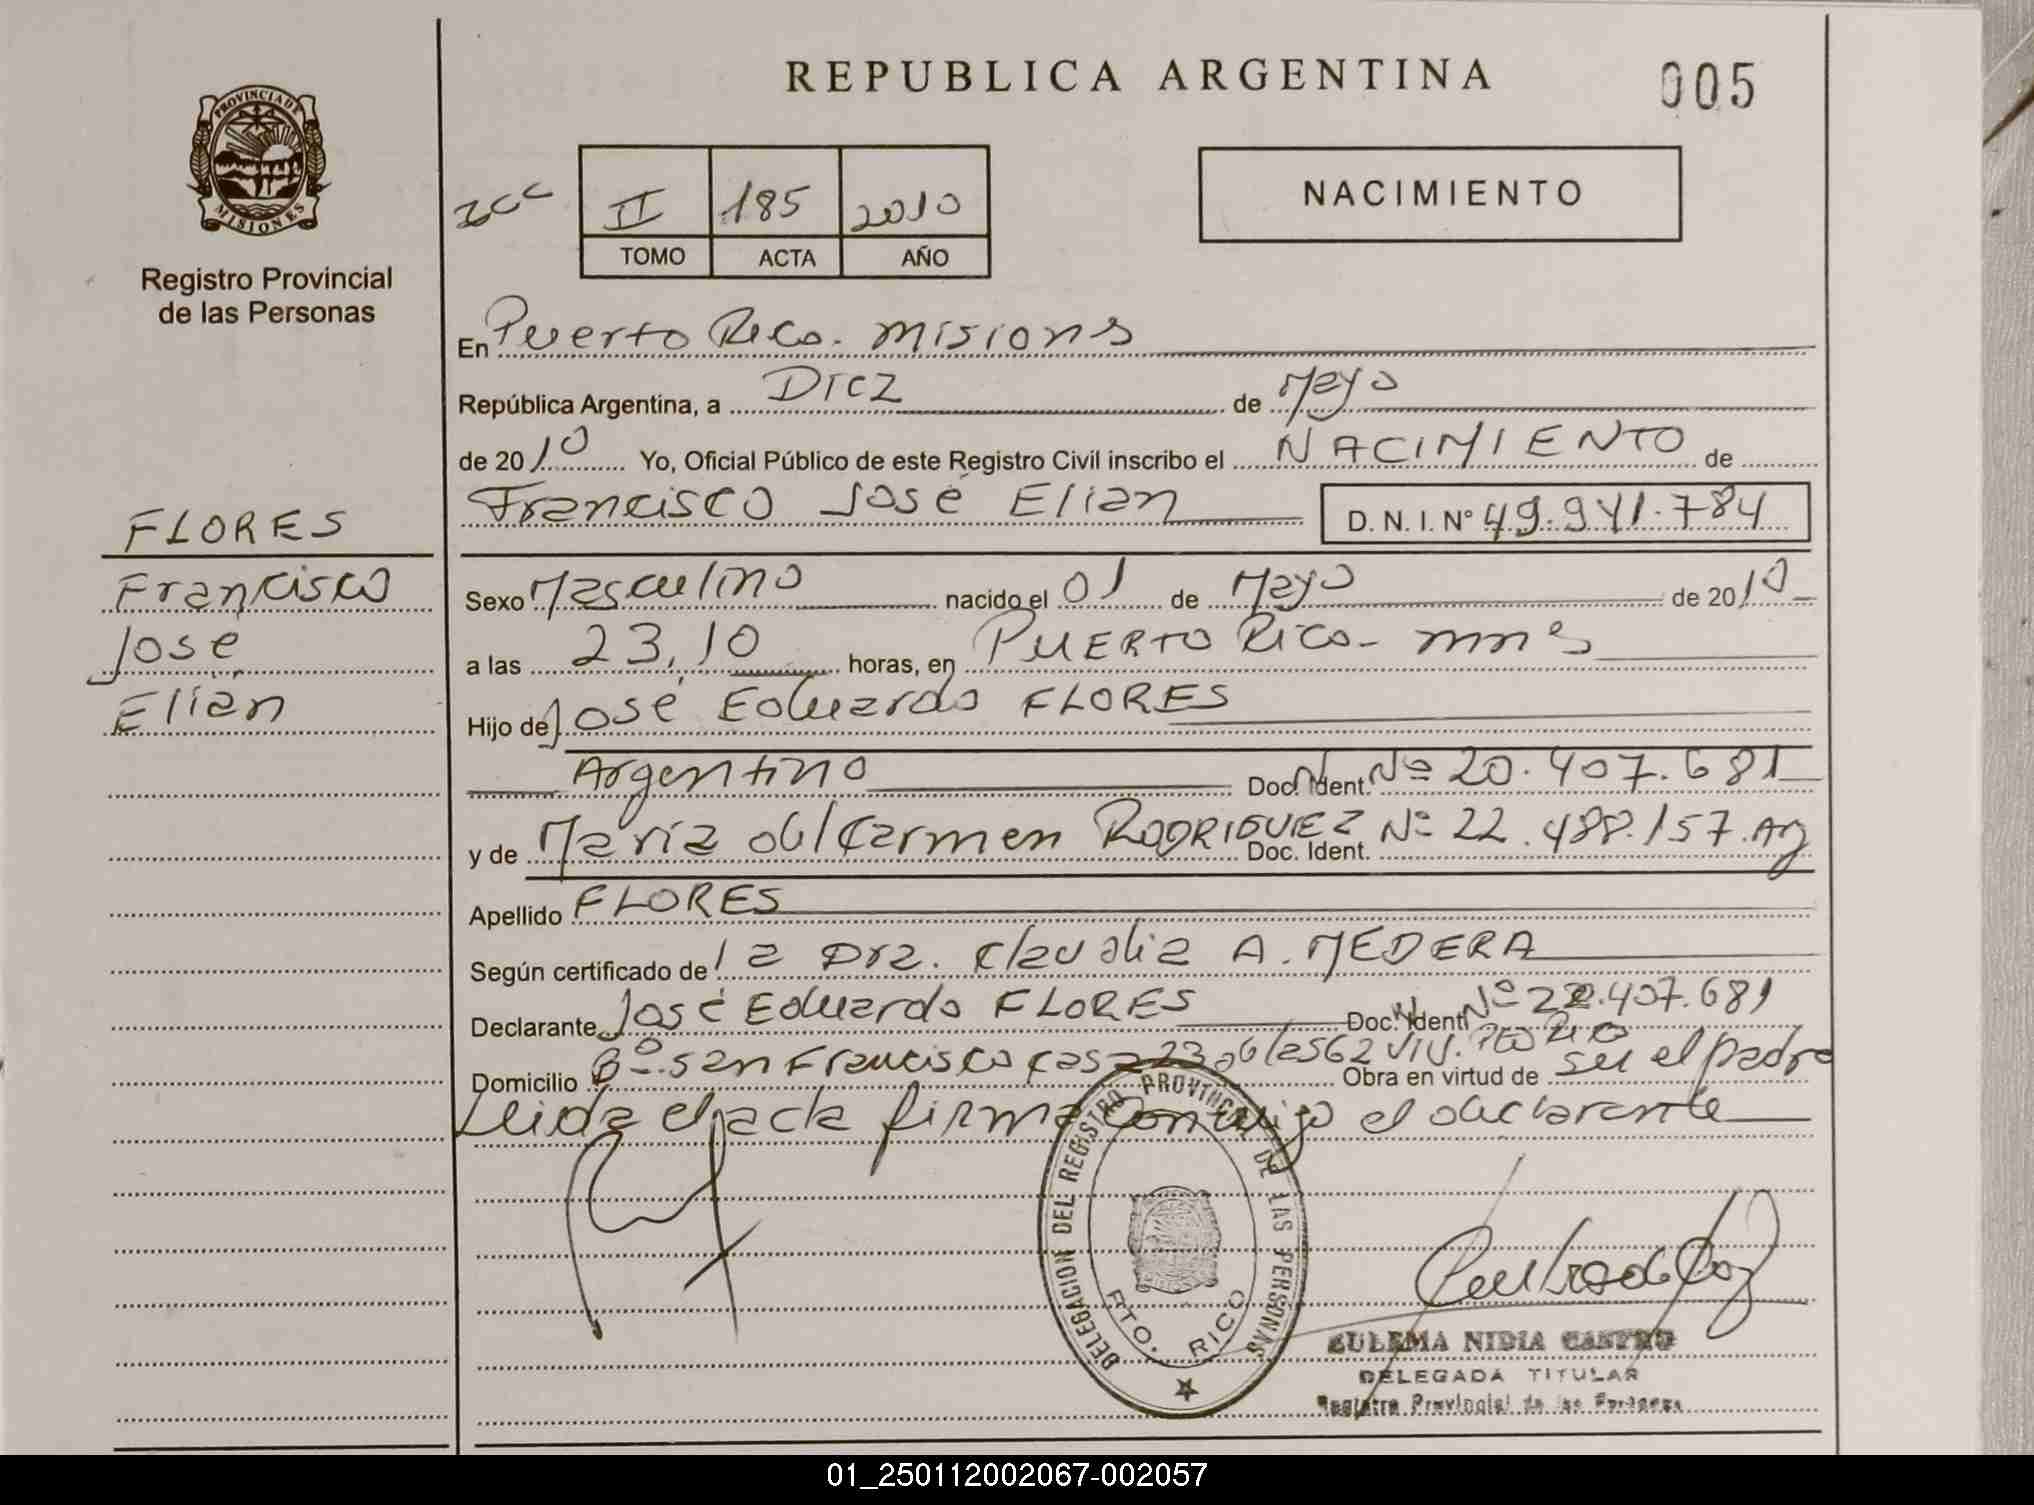 REPUBLICA ARGENTINA
005
PROVINCIA DE
MISIONES
Registro Provincial
de las Personas
II 185 2010
TOMO ACTA AÑO
NACIMIENTO
En Puerto Rico. Misions
República Argentina, a Diez de Mayo
de 2010 Yo, Oficial Público de este Registro Civil inscribo el NACIMIENTO de
Francisco José Elian D. N. I. Nº 49.941.784
FLORES
Francisco
José
Elian
Sexo Masculino nacido el 01 de Mayo de 2010
a las 23,10 horas, en PUERTO Rico- mnes
Hijo de José Eduardo FLORES
Argentino Doc. Ident. Nº 20.407.681
y de María del Carmen RODRIGUEZ Doc. Ident. Nº 22.488.157. Arg
Apellido FLORES
Según certificado de la Dra. Claudia A. MEDERA
Declarante José Eduardo FLORES Doc. Ident. Nº .407.681
Domicilio Bº San Francisco casa 23 de las 62 viv. Pto Rico Obra en virtud de ser el padre
Leida el acta firma conmigo el declarante
DELEGACION DEL REGISTRO PROVINCIAL DE LAS PERSONAS
PTO. RICO
ZULEMA NIDIA CASTRO
DELEGADA TITULAR
Registro Provincial de las Personas
01_250112002067-002057